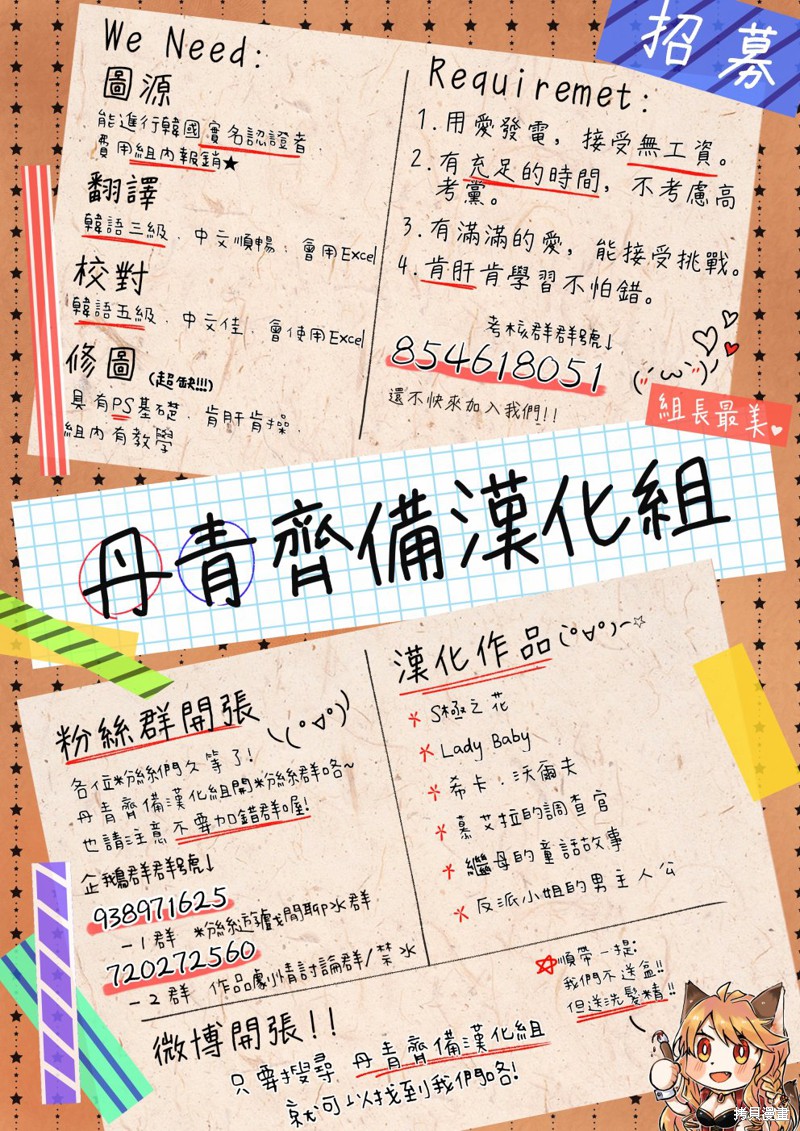 招募
We Need:
圖源
能進行韓國實名認證者.
費用組內報銷★
翻譯
韓語三級．中文順暢．會用Excel
校對
韓語五級．中文佳．會使用Excel
修圖(超缺!!!)
具有PS基礎．肯肝肯操．
組內有教學
Requiremet:
1.用愛發電，接受無工資。
2.有充足的時間，不考慮高
考黨。
3.有滿滿的愛，能接受挑戰。
4.肯肝肯學習不怕錯。
考核群群號↓
854618051
還不快來加入我們!!
(´ω`)
組長最美♥
丹青齊備漢化組
粉絲群開張 \(°∀°)/
各位粉絲們久等了!
丹青齊備漢化組開粉絲群咯~
也請注意不要加錯群喔!
企鵝群群號↓
938971625
-1群 粉絲遊戲閒聊水群
720272560
-2群 作品劇情討論群/禁水
漢化作品(°∀°)~☆
S極之花
Lady Baby
希卡．沃爾夫
慕艾拉的調查官
繼母的童話故事
反派小姐的男主人公
☆順帶一提:
我們不送盆!!
但送洗髮精!!
微博開張!!
只要搜尋 丹青齊備漢化組
就可以找到我們咯!
拷貝漫畫